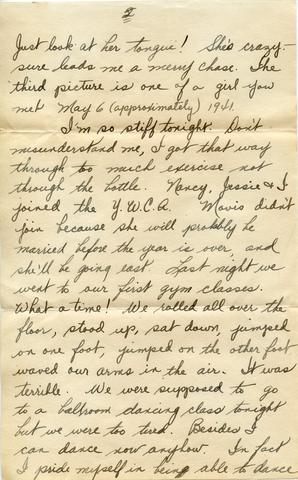 2
Just look at her tongue! She's crazy-
sure leads me a merry chase. The
third picture is one of a girl you
met May 6 (approximately) 1941.
I'm so stiff tonight. Don't
misunderstand me, I got that way
through too much exercise not
through the bottle. Nancy, Jessie & I
joined the Y.W.C.A. Mavis didn't
join because she will probably be
married before the year is over and
she'll be going east. Last night we
went to our first gym classes.
What a time! We rolled all over the
floor, stood up, sat down, jumped
on one foot, jumped on the other foot
waved our arms in the air. It was
terrible. We were supposed to go
to a ballroom dancing class tonight
but we were too tired. Besides I
can dance now anyhow. In fact
I pride myself in being able to dance